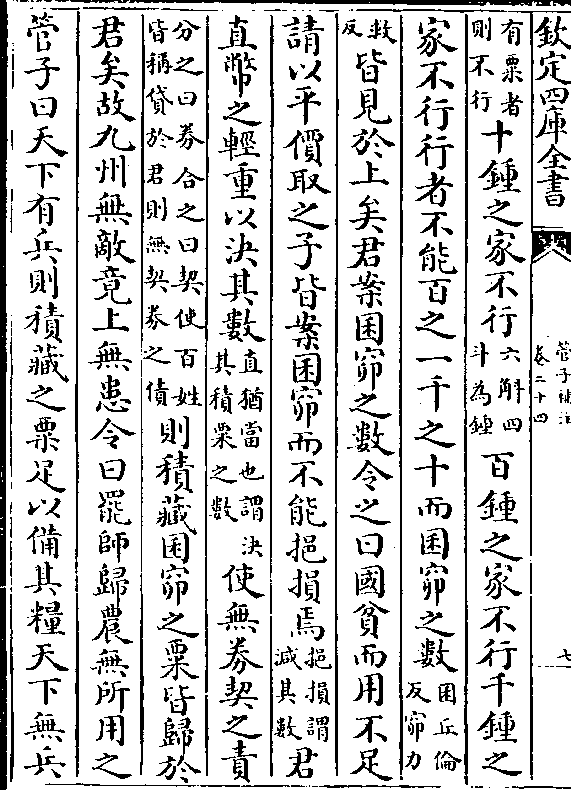 欽定四庫全書
管子補注
卷二十四
七
有粟者則不行十鍾之家不行六斛四斗為鍾百鍾之家不行千鍾之
家不行行者不能百之一千之十而囷窌之數囷丘倫反窌力
救反皆見於上矣君案囷窌之數令之曰國貧而用不足
請以平價取之子皆案囷窌而不能挹損焉挹損謂減其數君
直幣之輕重以決其數直猶當也謂決其積粟之數使無券契之責
分之曰券合之曰契使百姓皆稱貸於君則無契券之債則積藏囷窌之粟皆歸於
君矣故九州無敵竟上無患令曰罷師歸農無所用之
管子曰天下有兵則積藏之粟足以備其糧天下無兵